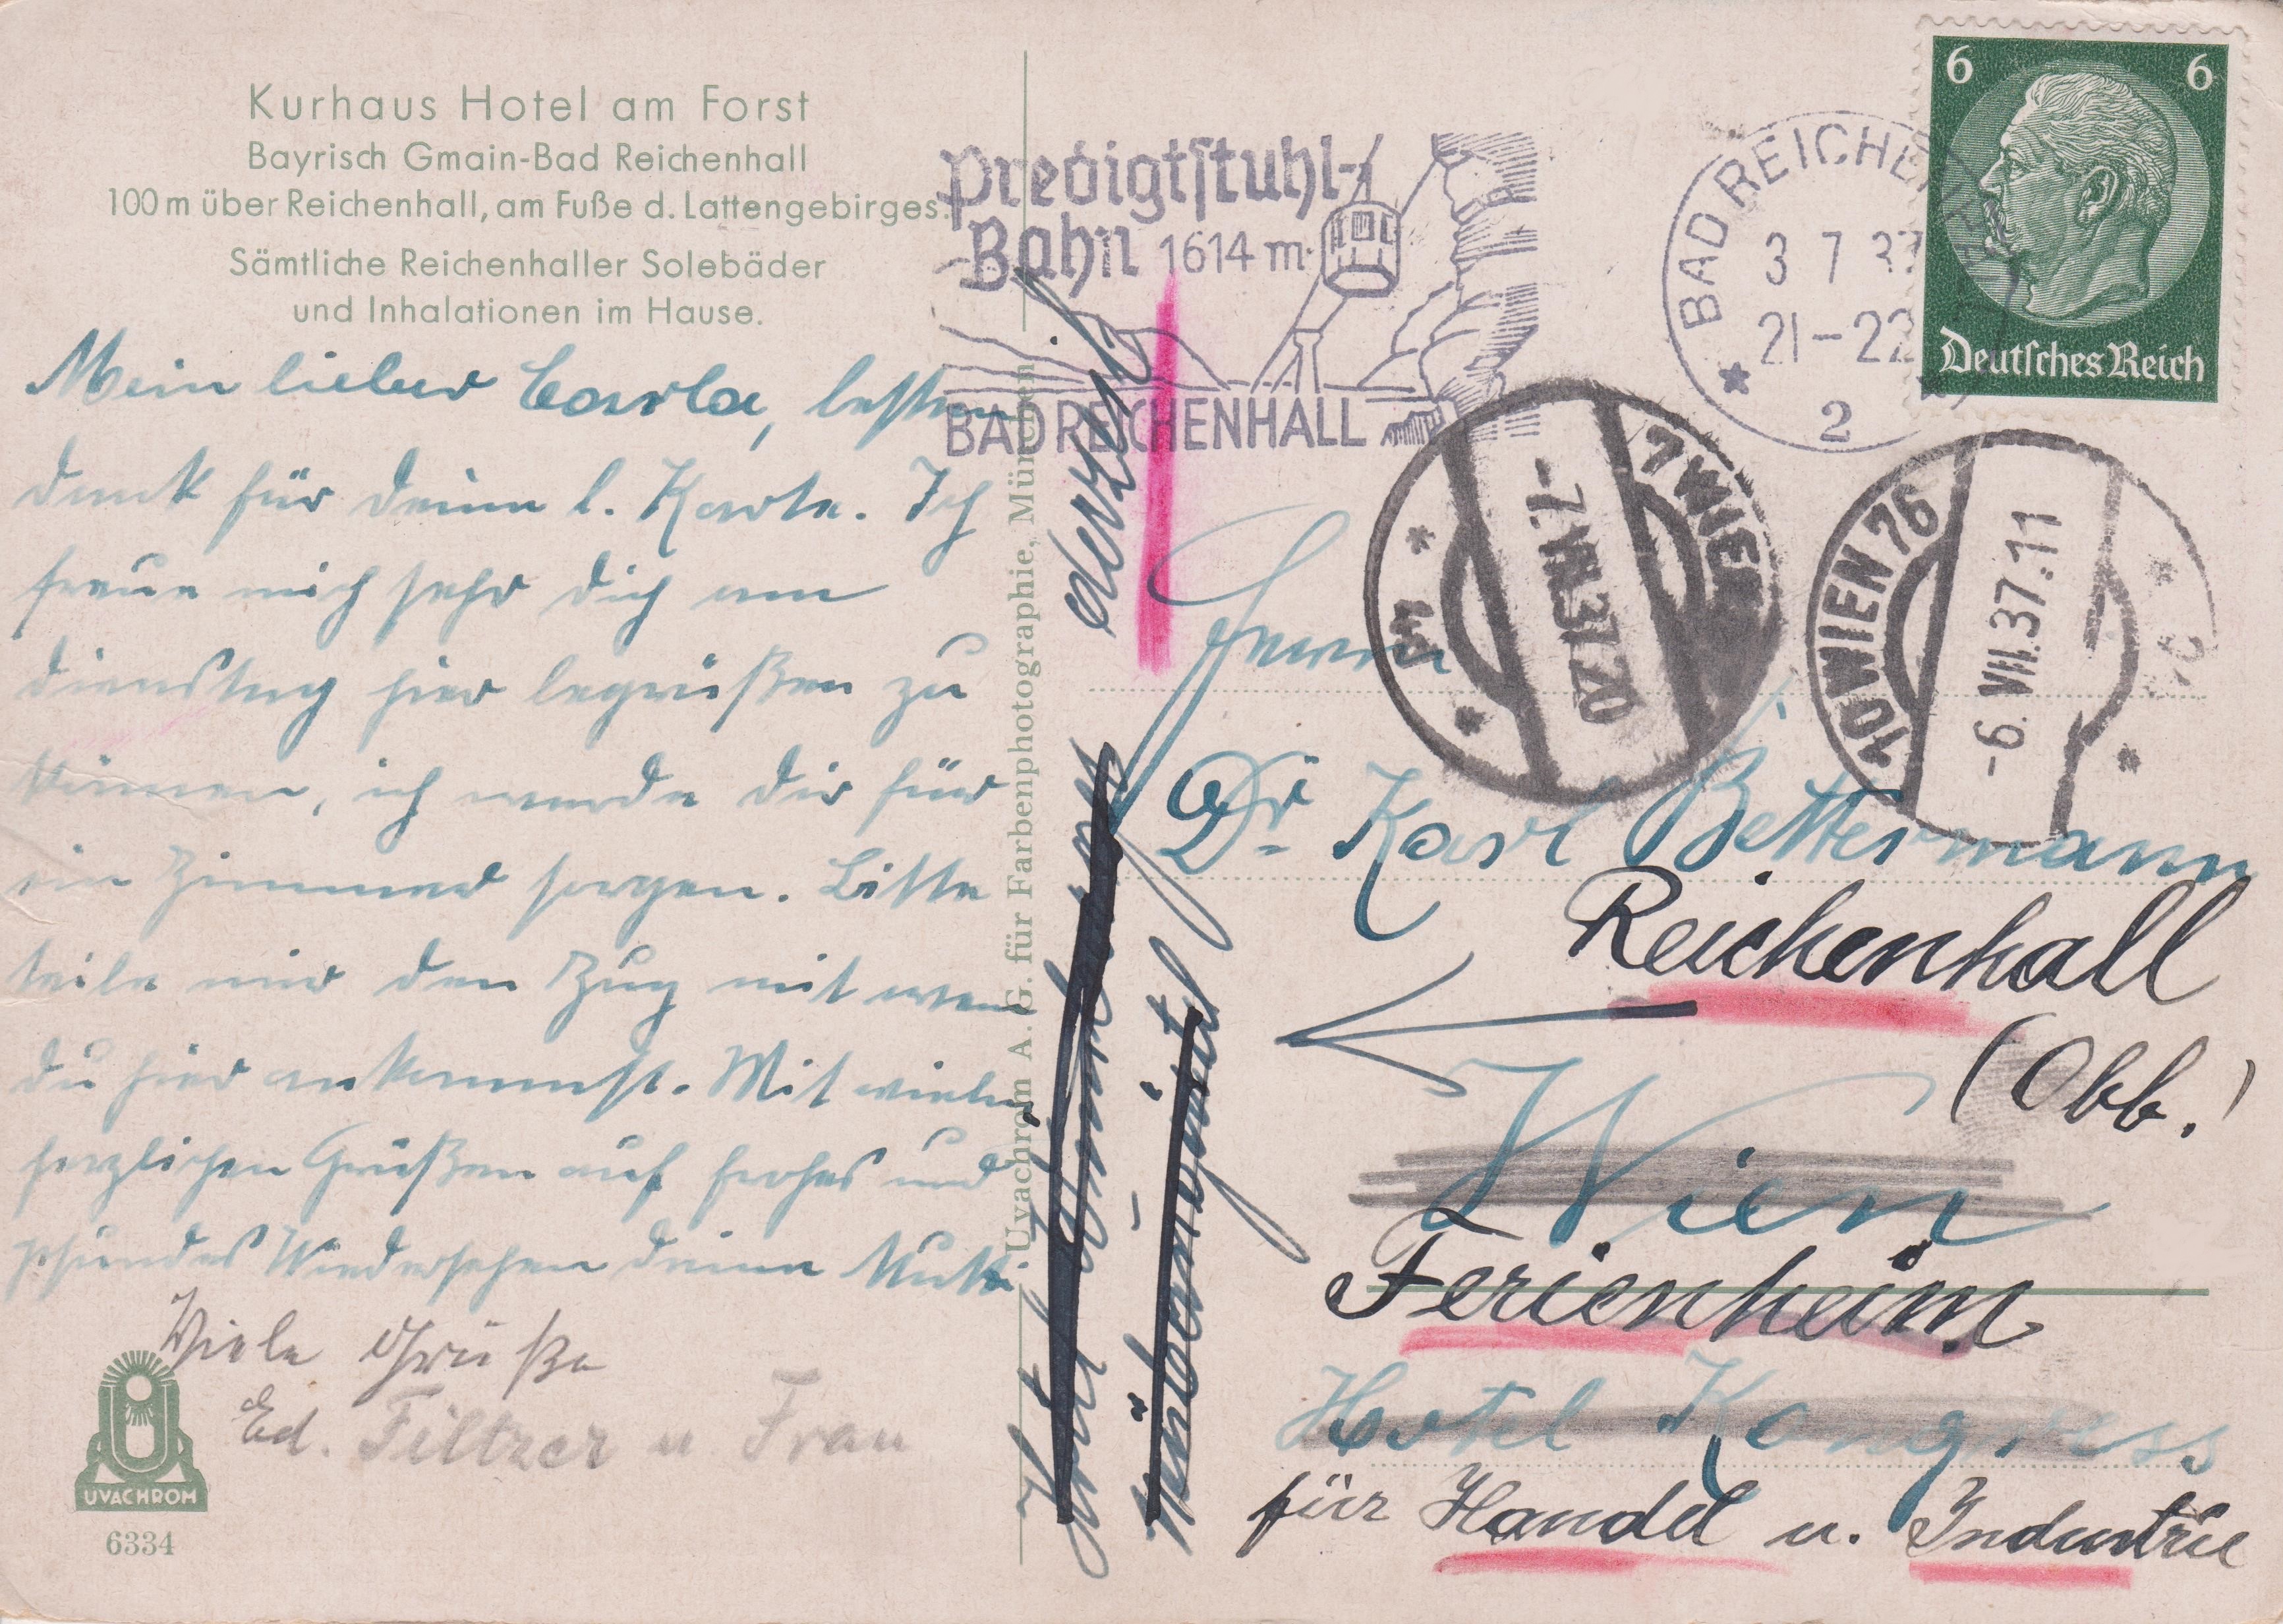 Kurhaus Hotel am Forst
Bayrisch Gmain-Bad Reichenhall
100 m über Reichenhall, am Fuße d. Lattengebirges.
Sämtliche Reichenhaller Solebäder
und Inhalationen im Hause.
Mein lieber Carla, besten
dank für deine l. Karte. Ich
freue mich sehr dich am
dienstag hier begrüßen zu
können, ich werde dir für
ein Zimmer sorgen. Bitte
teile mir den Zug mit wenn
du hier ankommst. Mit vielen
herzlichen Grüßen auf frohes und
Wiedersehen deine Mutti
Viele Grüße
Ed. Filtzer u. Frau
UVACHROM
6334
Uvachrom A. G. für Farbenphotographie, München
Predigtstuhl-
Bahn 1614 m
BAD REICHENHALL
BAD REICHENHALL
3 7 37
21-22
2
6 6
Deutsches Reich
7 WIEN
-7.VII.37.20
10 WIEN 76
-6.VII.37.11
derzeit
Herrn
Dr. Karl Bettermann
Reichenhall
(Obb.)
Wien
Ferienheim
Hotel Kongress
für Handel u. Industrie